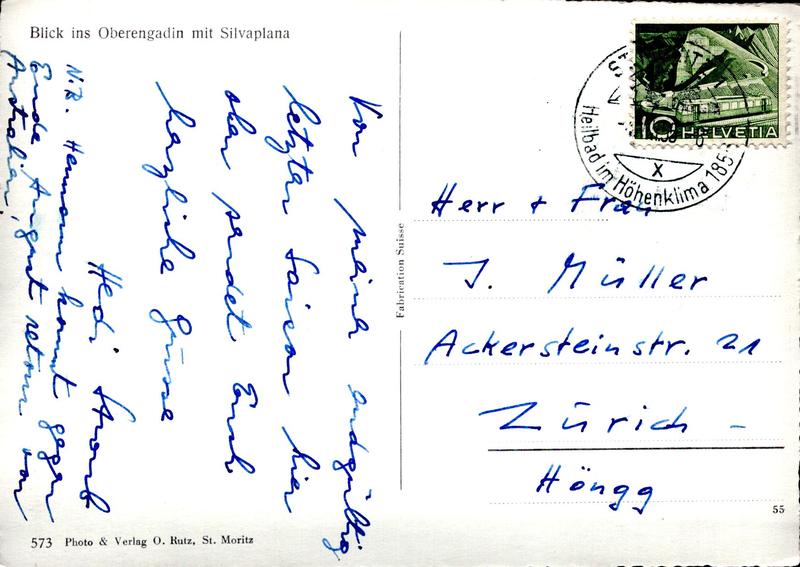 Blick ins Oberengadin mit Silvaplana
Von meiner endgültig
letzten Saison hier
oben sendet Euch
herzliche Grüsse
Hedi
N.B. Hermann kommt gegen
Ende August retour von
Australien.
573 Photo & Verlag O. Rutz, St. Moritz
Fabrication Suisse
HELVETIA
10
ST.
Heilbad im Höhenklima 185
X
Herr + Frau
J. Müller
Ackersteinstr. 21
Zürich -
Höngg
55